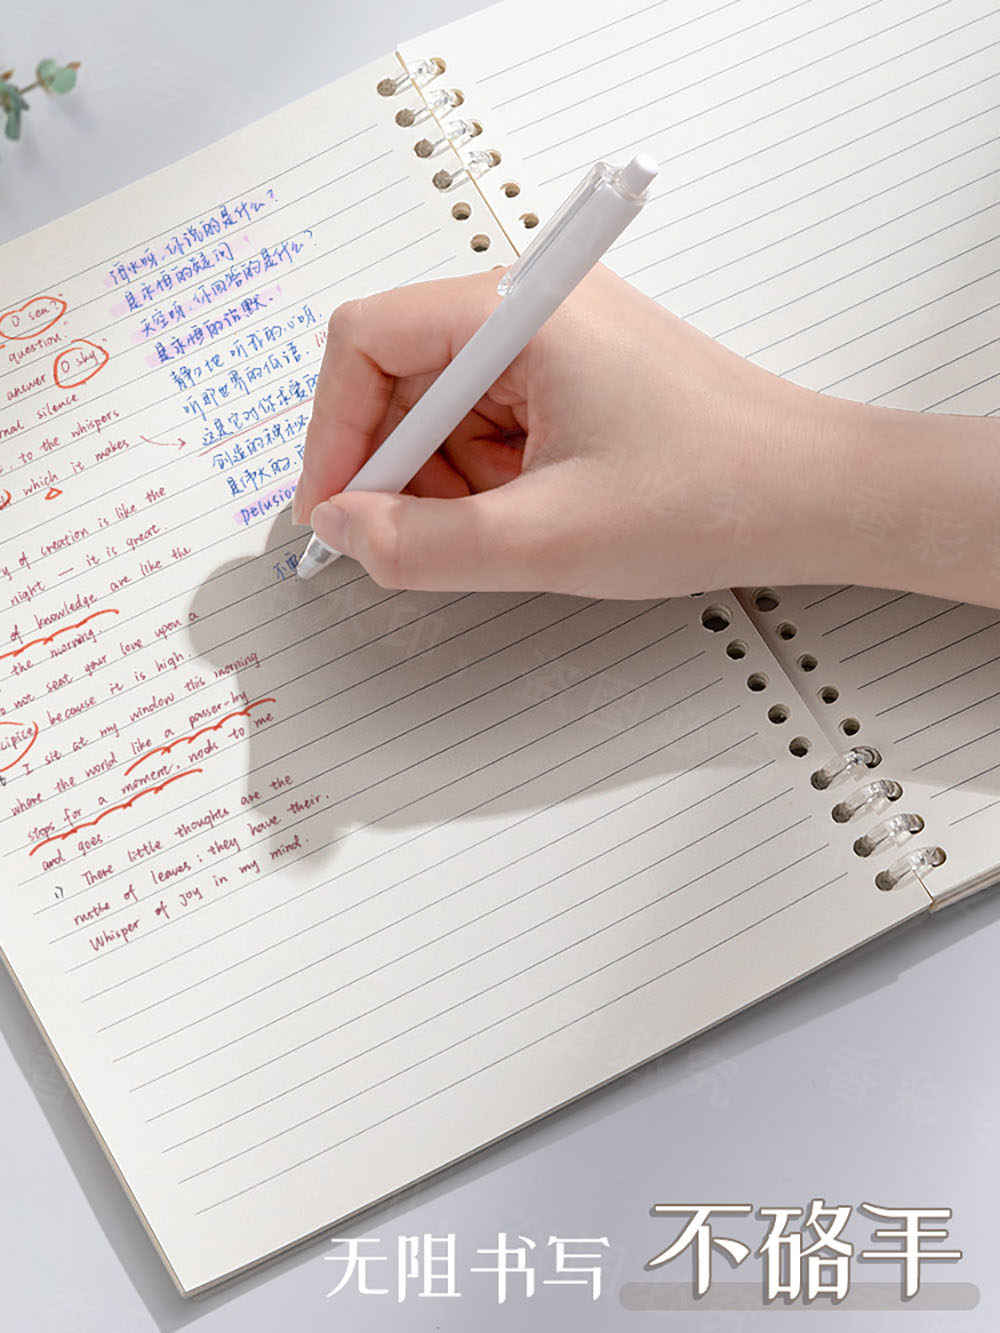 O sea?"
question."
answer O sky?
rnal silence
, to the whispers
which it makes
y of creation is like the
night — it is great.
of knowledge are like the
the morning.
not seat your love upon a
cipice because it is high.
I sit at my window this morning
where the world like a passer-by
stops for a moment, nods to me
and goes.
There little thoughts are the
rustle of leaves; they have their
Whisper of joy in my mind.
海水呀,你说的是什么?
是永恒的疑问
天空呀,你回答的是什么?
是永恒的沉默.
静静地听我的心呀.
听那世界的低语.
这是它对你求爱的
创造的神秘
是伟大的.
Delusion
无阻书写
不硌手